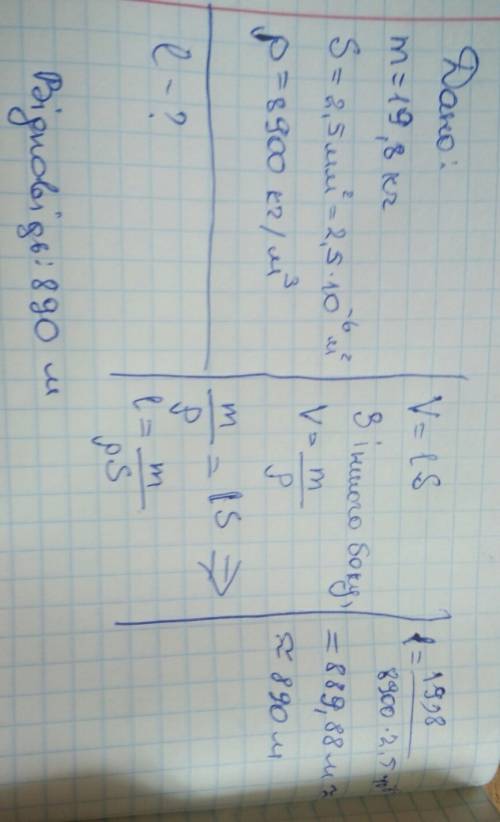 Дано:
m = 19,8 кг
S = 2,5 мм² = 2,5 · 10⁻⁶ м²
ρ = 8900 кг/м³
l - ?
V = lS
З іншого боку,
V = m/ρ
m/ρ = lS ⇒
l = m/ρS
l = 19,8/8900 · 2,5
= 889,88 м ≈
≈ 890 м
Відповідь: 890 м